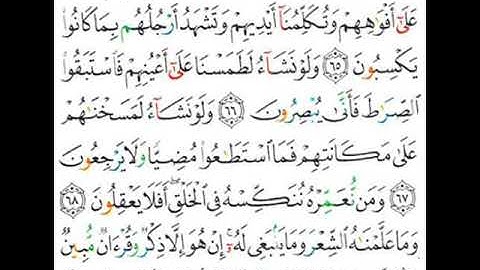 عَلَىٰٓ أَفۡوَٰهِهِمۡ وَتُكَلِّمُنَآ أَيۡدِيهِمۡ وَتَشۡهَدُ أَرۡجُلُهُم بِمَا كَانُواْ
يَكۡسِبُونَ ٦٥ وَلَوۡ نَشَآءُ لَطَمَسۡنَا عَلَىٰٓ أَعۡيُنِهِمۡ فَٱسۡتَبَقُواْ
ٱلصِّرَٰطَ فَأَنَّىٰ يُبۡصِرُونَ ٦٦ وَلَوۡ نَشَآءُ لَمَسَخۡنَٰهُمۡ
عَلَىٰ مَكَانَتِهِمۡ فَمَا ٱسۡتَطَٰعُواْ مُضِيّٗا وَلَا يَرۡجِعُونَ
٦٧ وَمَن نُّعَمِّرۡهُ نُنَكِّسۡهُ فِي ٱلۡخَلۡقِۚ أَفَلَا يَعۡقِلُونَ ٦٨
وَمَا عَلَّمۡنَٰهُ ٱلشِّعۡرَ وَمَا يَنۢبَغِي لَهُۥٓۚ إِنۡ هُوَ إِلَّا ذِكۡرٞ وَقُرۡءَانٞ مُّبِينٞ